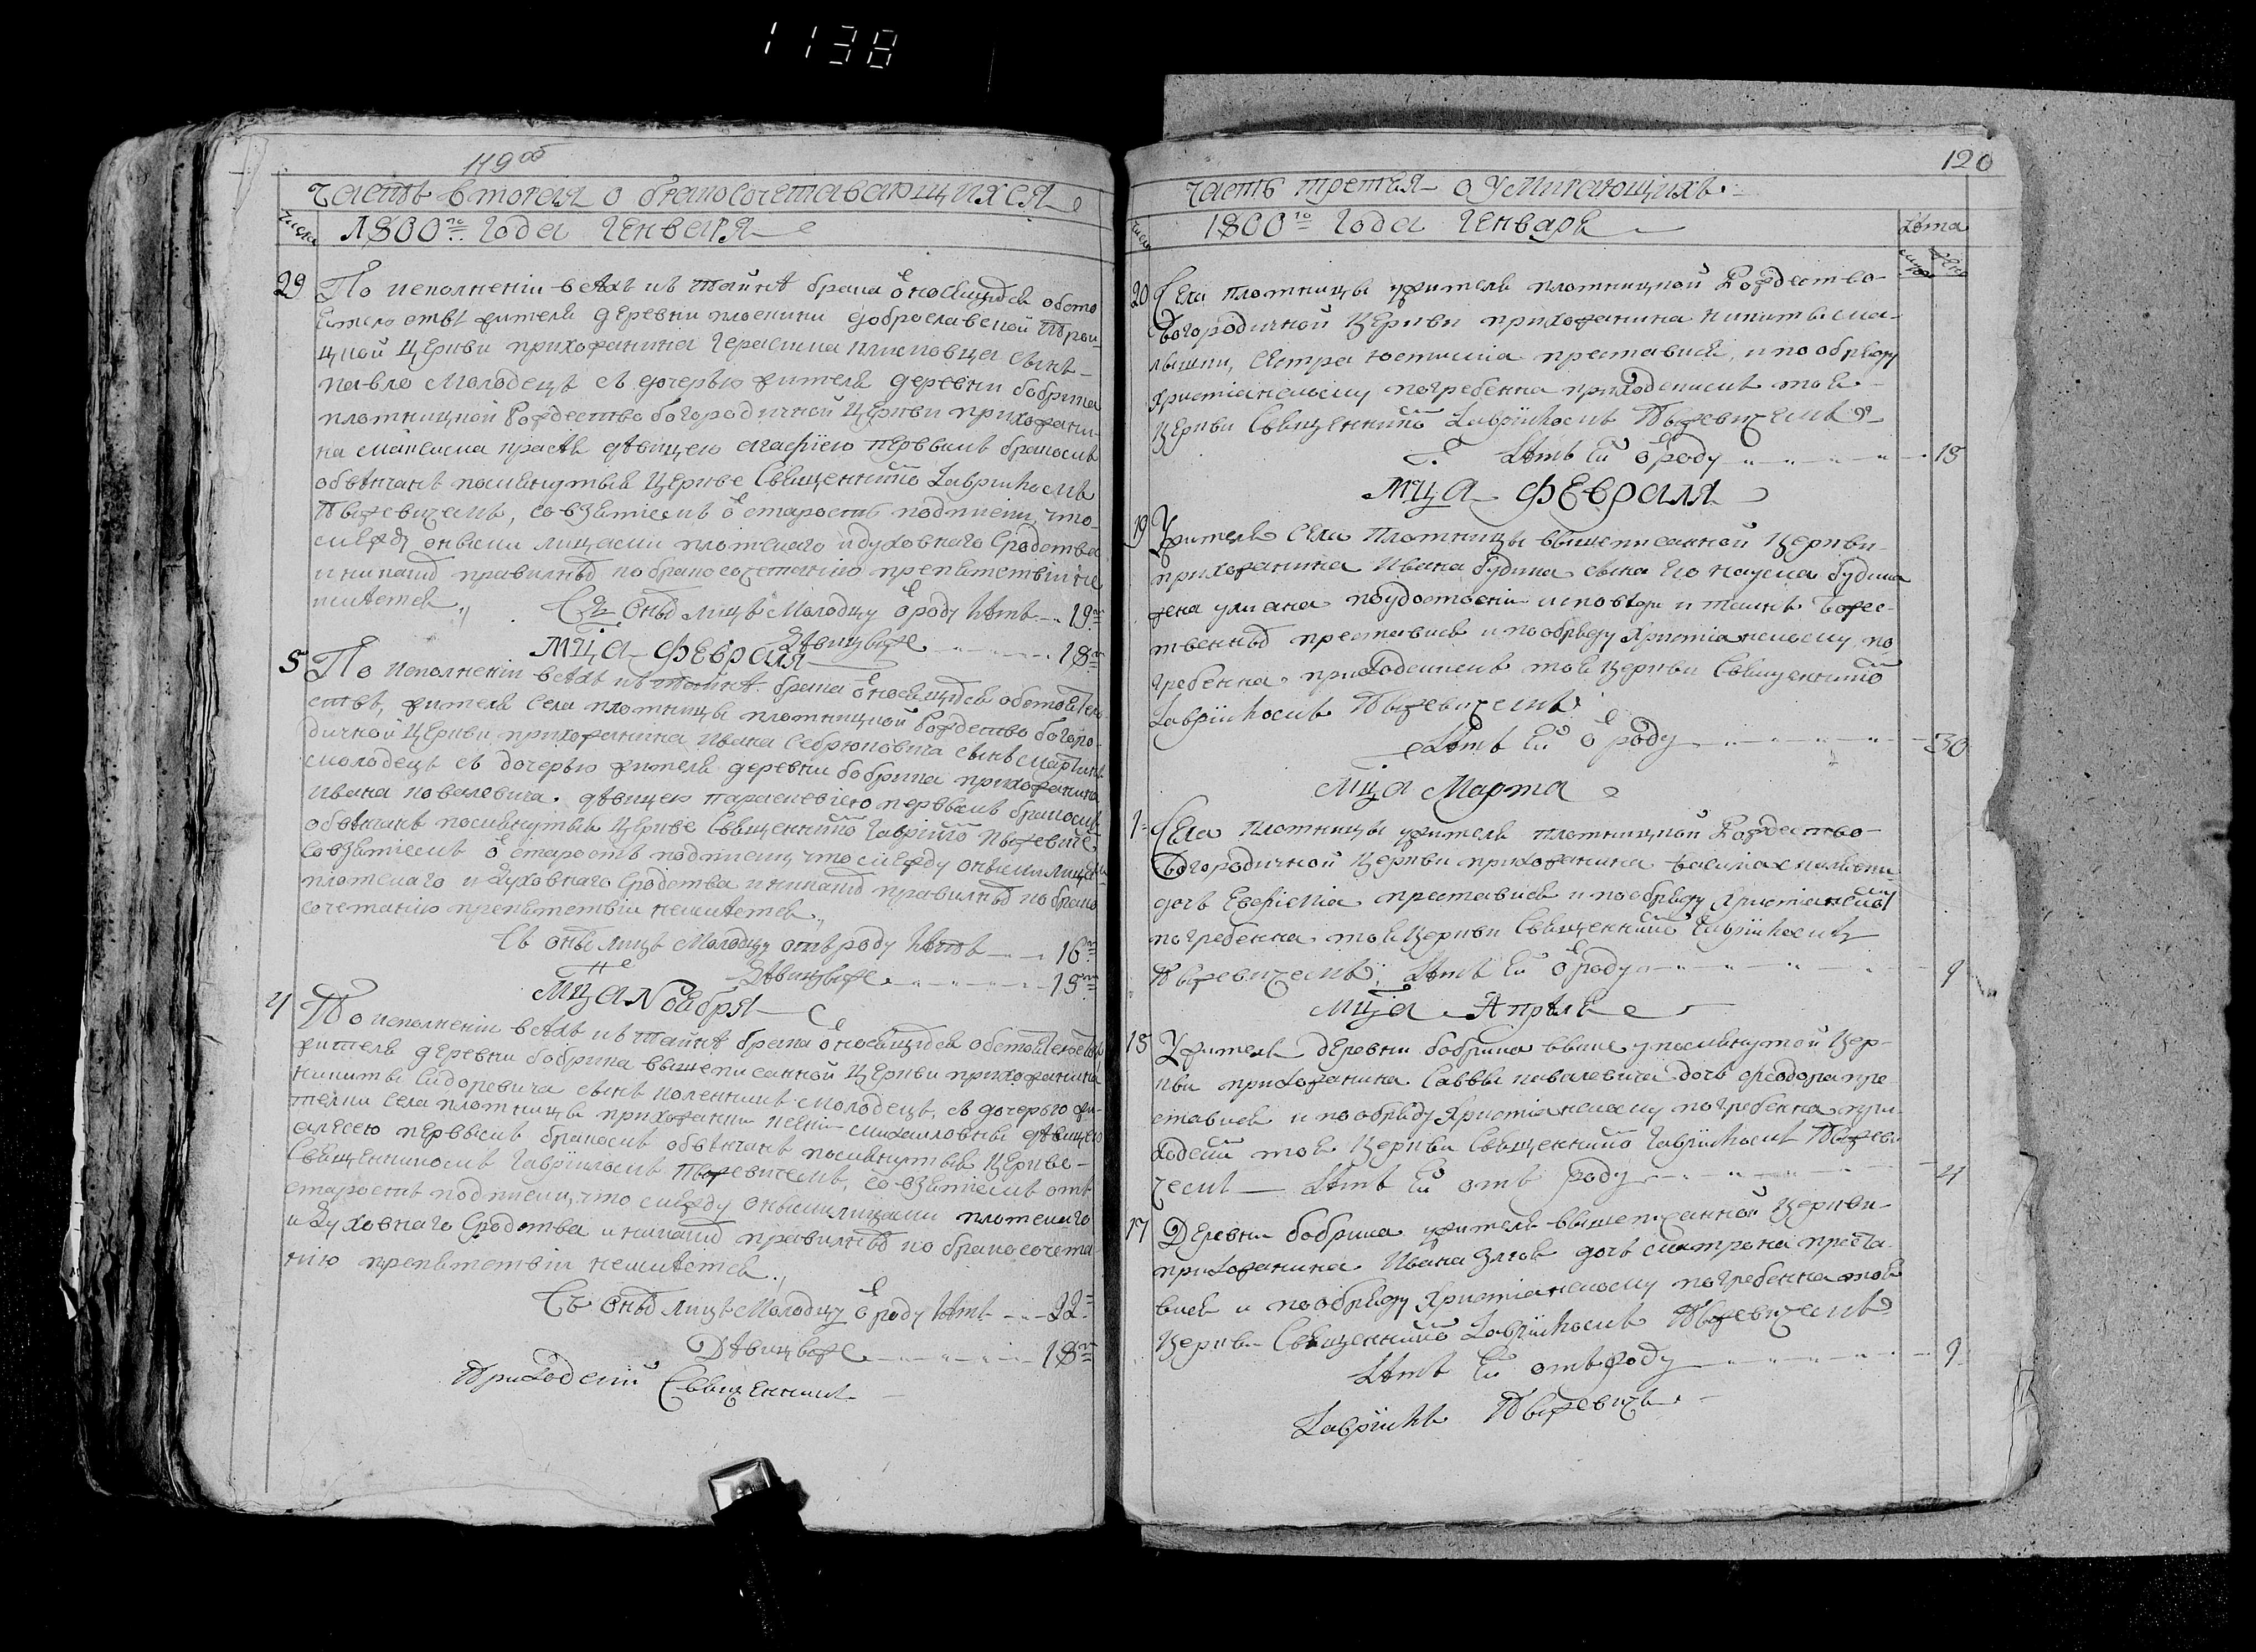 1138
119 об
Часть вторая о бракосочетавающихся
числа
1800го Года Генваря
29 По исполненіи всѣхъ къ тайнѣ брака относящихся обсто
ятелствъ жителя деревни плоскини доброславской Трои-
цкой Церкви прихожанина Герасима сынъ
павло молодецъ съ дочерью жителя деревни бобрика
плотницкой Рождество богородичной Церкви прихожани-
на максима дѣвицею агафіею первымъ бракомъ
обвѣнчанъ помянутыя Церкве Священникомъ Гавріиломъ
Пыжевичемъ, со взятіемъ от старостъ подписки, что
между оными лицами плотскаго и духовнаго Сродства
и никакихъ правилныхъ ко бракосочетанію препятствій не
имѣется. Съ оныхъ лицъ Молодцу от роду лѣтъ 19
Дѣвицы же 18
Мца Февраля
5 По исполненіи всѣхъ къ тайнѣ брака относящихся обстоятел
ствъ, жителя села плотницы плотницкой Рождество богоро-
дичной Церкви прихожанина Ивана Себрюковича сынъ мартинъ
молодецъ съ дочерью жителя деревни бобрика прихожанина
Ивана ковалевича дѣвицею параскевіею первымъ бракомъ
обвѣнчанъ помянутыя Церкве Священникомъ Гавріиломъ Пыжевиче
со взятіемъ от старостъ подписки, что между оными лицами
плотскаго и духовнаго Сродства и никакихъ правилныхъ ко брако
сочетанію препятствій не имѣется
Съ оныхъ лицъ Молодцу отъ роду лѣтъ 16
Дѣвицы же 15
Мца Ноября
4 По исполненіи всѣхъ къ тайнѣ брака относящихся обстоятелствъ
жителя деревни бобрика вышеписанной Церкви прихожанина
никиты Сидоревича сынъ молодецъ, съ дочерью жи-
телки села плотницы прихожанки михаиловны дѣвицею
первымъ бракомъ обвѣнчанъ помянутыя Церкве
Священникомъ Гавріиломъ Пыжевичемъ, со взятіемъ отъ
старостъ подписки, что между оными лицами плотскаго
и Духовнаго Сродства и никакихъ правилныхъ ко бракосочета
нію препятствій не имѣется
Съ оныхъ лицъ Молодцу от роду лѣтъ 22
Дѣвицы же 18
Приходскій Священникъ
120
Часть третья о умирающихъ
числа
1800го Года Генваря
Лѣта
20 Села плотницы жителя плотницкой Рождество-
Богородичной Церкви прихожанина никиты
сестра Іустина преставися, и по обряду
христіанскому погребенна приходскимъ тоя
Церкви Священникомъ Гавріиломъ Пыжевичемъ
Лѣтъ ей от роду 15
Мца Февраля
19 Жителя Села Плотницы вышеписанной Церкви
прихожанина Ивана будика сына его наума будика
жена улиана по удостоеніи исповѣди и таинъ Божес-
твенныхъ преставися и по обряду Христіанскому по
гребенна приходскимъ тоя Церкви Священникомъ
Гавріиломъ Пыжевичемъ
Лѣтъ ей от роду 30
Мца Марта
1 Села Плотницы жителя плотницкой Рождество-
Богородичной Церкви прихожанина
дочь Евфимія преставися и по обряду Христіанскому
погребенна тоя Церкви Священникомъ Гавріиломъ
Пыжевичемъ, Лѣтъ ей от роду 9
Мца Апрѣля
15 Жителя деревни бобрика выше упомянутой Цер-
кви прихожанина Саввы ковалевича дочь феодора пре
ставися и по обряду Христіанскому погребенна при
ходскимъ тоя Церкви Священникомъ Гавріиломъ Пыжеви
чемъ Лѣтъ ей отъ роду 4
17 Деревни бобрика жителя вышеписанной Церкви
прихожанина Ивана дочь матрона преста
вися и по обряду Христіанскому погребенна тоя
Церкви Священникомъ Гавріиломъ Пыжевичемъ
Лѣтъ ей отъ роду 9
Гавріилъ Пыжевичъ